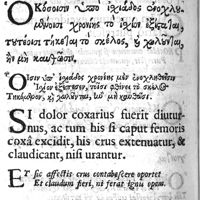 Ὁκόσοισιν ὑπὸ ἰσχιάδος ἐνοχλου-
μένοισι χρονίης τὸ ἰσχίον ἐξίσταται,
τουτέοισι τήκεται τὸ σκέλος, καὶ χωλοῦνται,
ἢν μὴ
Οἷσιν ὑπ' ἰσχιάδος χρονίης μὲν
Ἰσχίον φθίνει τὸ
καὶ χωλοῦνται, μὴ
SI dolor coxarius fuerit diutur-
nus, ac tum his si caput femoris
coxâ excidit, his crus extenuatur, &
claudicant, nisi urantur.
Et sic affectis crus contabescere oportet
Et claudum fieri, ni ferat ignis opem.